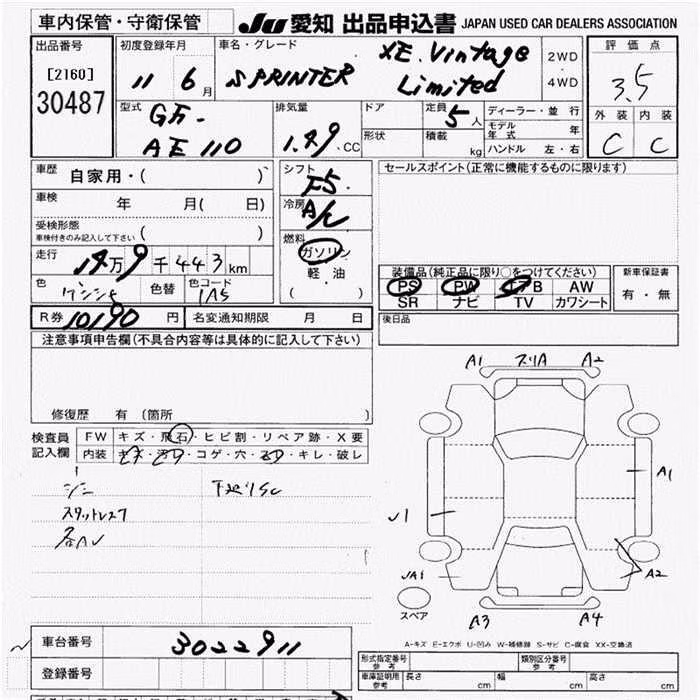 車内保管・守衛保管
JU 愛知 出品申込書 JAPAN USED CAR DEALERS ASSOCIATION
出品番号
[2160]
30487
初度登録年月
11 6月
車名・グレード
SPRINTER XE.Vintage Limited
2WD
4WD
評価点
3.5
外装 内装
C C
型式
GF-
AE110
排気量
1.49.CC
ドア
形状
定員 5人
積載 kg
ディーラー・並行
モデル年式 年
ハンドル 左・右
車歴
自家用・( )
車検 年 月( 日)
受検形態
車検付きのみ記入して下さい ( )
走行
万9千443km
色 色替 色コード
1A5
R券 10190 円 名変通知期限 月 日
シフト
F5
冷房
A/C
燃料
ガソリン
軽油
( )
セールスポイント(正常に機能するものに限ります)
装備品(純正品に限り○をつけてください)
PS PW B AW
SR ナビ TV カワシート
新車保証書
有・無
後日品
注意事項申告欄(不具合内容等は具体的に記入して下さい)
修復歴 有 (箇所 )
検査員
記入欄
FW キズ・飛石・ヒビ割・リペア跡・X要
内装 コゲ・穴・キレ・破レ
スタットレス7
A1 A2
A1
J1
JA1
A2
A3 A4
スペア
A-キズ E-エクボ U-凹み W-補修跡 S-サビ C-腐食 XX-交換済
車台番号 3022911
登録番号
形式指定番号
参考
類別区分番号
参考
車庫証明用
参考
長さ cm 幅 cm 高さ cm